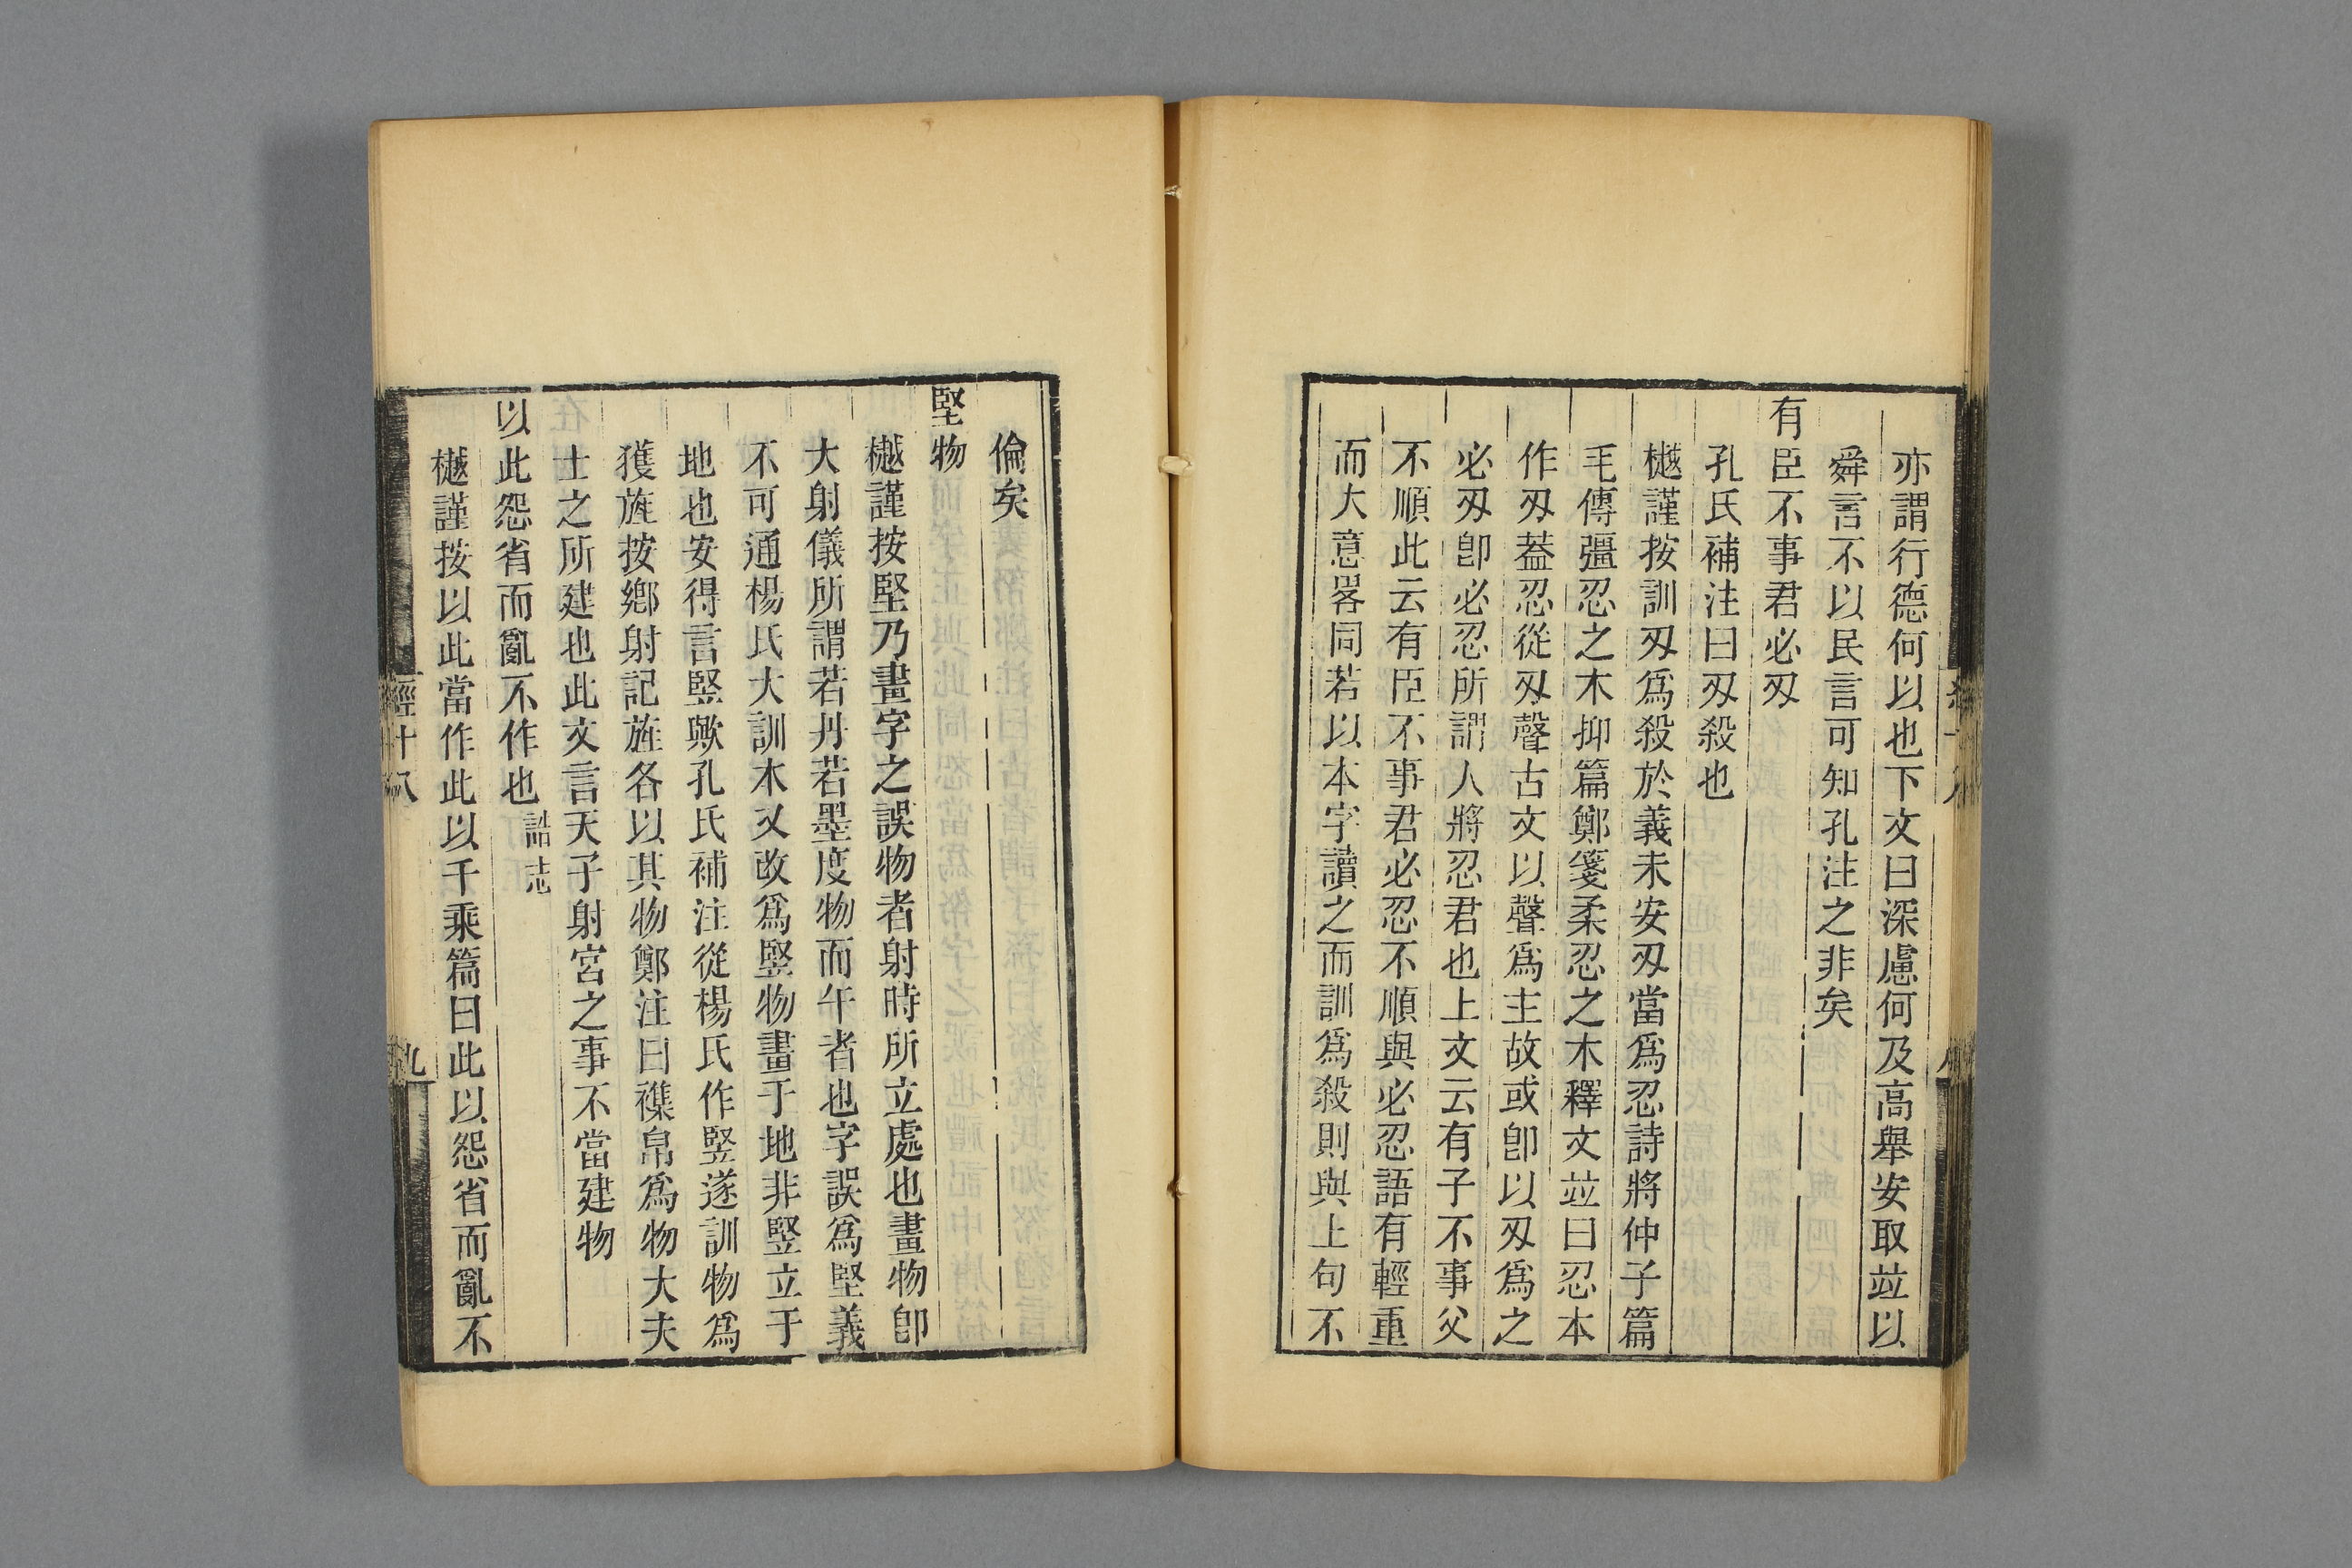 亦謂行德何以也下文曰深慮何及高舉安取竝以
舜言不以民言可知孔注之非矣
有臣不事君必刄
孔氏補注曰刄殺也
樾謹按訓刄爲殺於義未安刄當爲忍詩將仲子篇
毛傳彊忍之木抑篇鄭箋柔忍之木釋文竝曰忍本
作刄葢忍從刄聲古文以聲爲主故或卽以刄爲之
必刄卽必忍所謂人將忍君也上文云有子不事父
不順此云有臣不事君必忍不順與必忍語有輕重
而大意畧同若以本字讀之而訓爲殺則與上句不
倫矣
堅物
樾謹按堅乃畫字之誤物者射時所立處也畫物卽
大射儀所謂若丹若墨度物而午者也字誤爲堅義
不可通楊氏大訓木又改爲竪物畫于地非竪立于
地也安得言竪歟孔氏補注從楊氏作竪遂訓物爲
獲旌按鄉射記旌各以其物鄭注曰襍帛爲物大夫
士之所建也此文言天子射宮之事不當建物
以此怨省而亂不作也 誥志
樾謹按以此當作此以千乘篇曰此以怨省而亂不
經十八
九